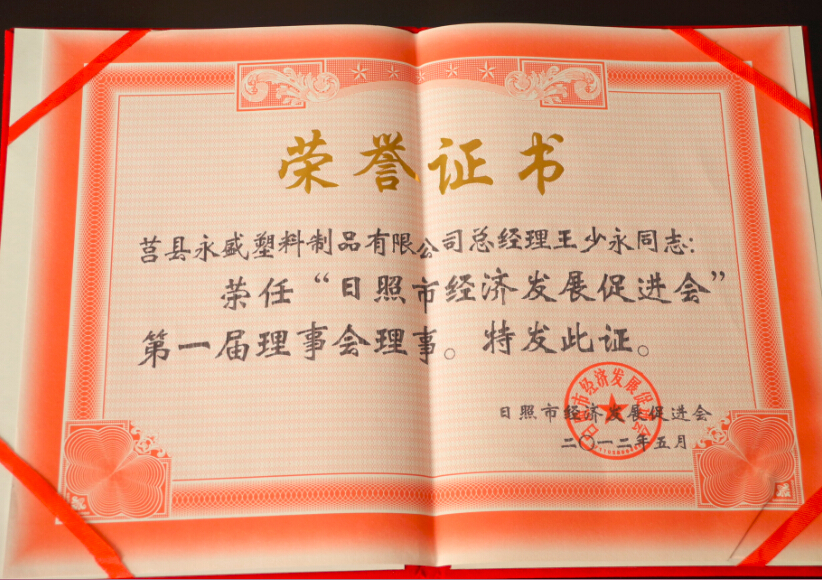 荣誉证书
莒县永盛塑料制品有限公司总经理王少永同志:
荣任“日照市经济发展促进会”
第一届理事会理事。特发此证。
日照市经济发展促进会
二〇一二年五月
日照市经济发展促进会